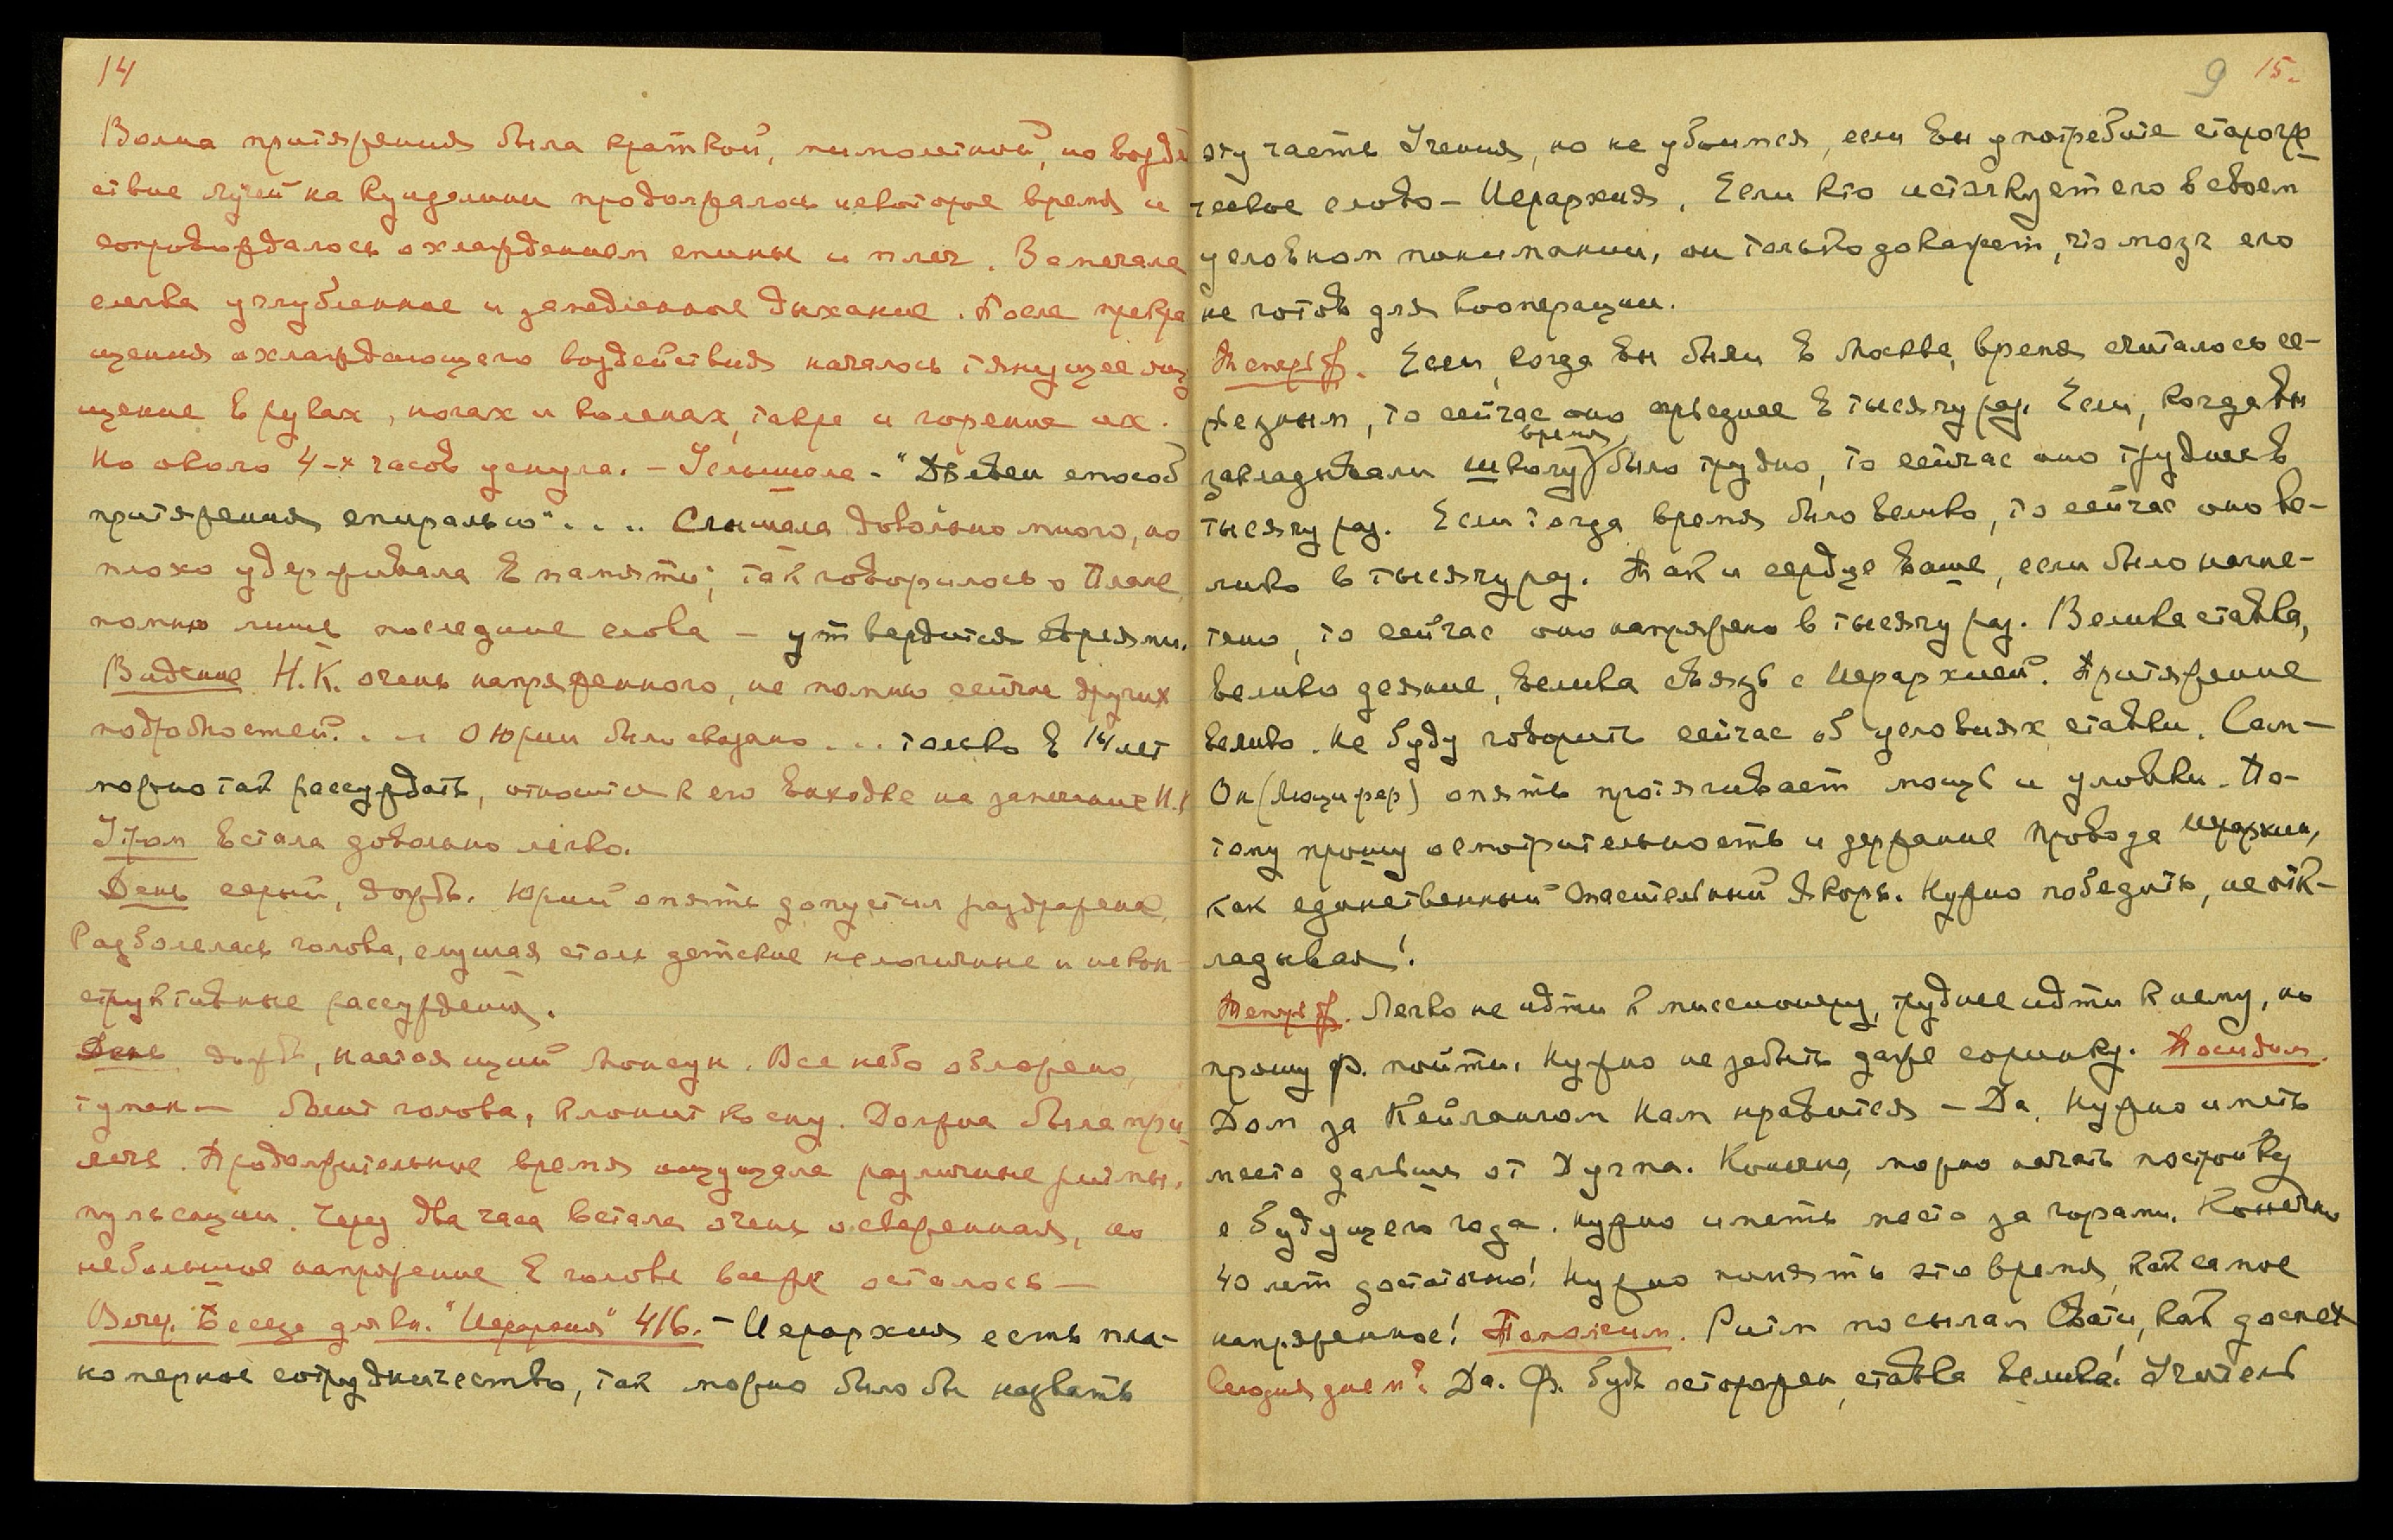 14
Волна притяжения была краткой, мимолетной, но воздей
ствие лучей на Кундалини продолжалось некоторое время и
сопровождалось охлаждением спины и плеч. Замечала
слегка углубленное и замедленное дыхание. После прекра
щения охлаждающего воздействия началось тянущее ощу
щение в руках, ногах и коленах, также и горение их.
Но около 4-х часов уснула. – Услышала – "Явлен способ
притяжения спирально".... Слышала довольно много, но
плохо удерживала в памяти; так говорилось о Плане,
помню лишь последние слова – утвердится
Видение Н.К. очень напряженного, не помню сейчас других
подробностей. ... О Юрии было сказано ... только в 14 лет
можно так рассуждать, относится к его выходке на замечание Н.К
Утром встала довольно легко.
День серый, дождь. Юрий опять допустил раздражение,
Разболелась голова, слушая столь детские нелогичные и некон-
структивные рассуждения.
День дождь, настоящий монсун. Все небо обложено,
туман – болит голова, клонит ко сну. Должна была при-
лечь. Продолжительное время ощущала различные ритмы,
пульсации. Через два часа встала очень освеженная, но
небольшое напряжение в голове все же осталось –
Вечер. Беседа для кн. "Иерархия" 416. – Иерархия есть пла-
номерное сотрудничество, так можно было бы назвать
9 15.
эту часть Учения, но не убоимся, если вы употребите старогр
ческое слово – Иерархия. Если кто истолкует его в своем
условном понимании, он только докажет, что мозг его
не готов для кооперации.
Теперь ф. Если, когда вы были в Москве, время считалось се-
рьезным, то сейчас оно серьезнее в тысячу раз. Если, когда вы
время
закладывали школу, было трудно, то сейчас оно труднее в
тысячу раз. Если тогда время было велико, то сейчас оно ве-
лико в тысячу раз. Так и сердце ваше, если было нагне-
тено, то сейчас оно напряжено в тысячу раз. Велика ставка,
велико деяние, велика связь с Иерархией. Притяжение
велико. Не буду говорить сейчас об условиях ставки. Сам –
Он (Люцифер) опять протягивает мощь и уловки. По-
тому прошу осмотрительность и держание провода Иерархии,
как единственный спасительный якорь. Нужно победить, не отк-
ладывая!
Теперь ф. Легко не идти к миссионеру, труднее идти к нему, но
прошу Ф. пойти. Нужно не забыть даже соринку. Посидим.
Дом за Кейлангом Нам нравится – Да. Нужно иметь
место дальше от Дугпа. Конечно, можно начать постройку
с будущего года. Нужно иметь место за горами. Конечно
40 лет достаточно! Нужно понять это время, как самое
напряженное! Положим. Ритм посылал Свати, как доспех
Сегодня днем? Да. Ф. будь осторожен, ставка велика! Учитель